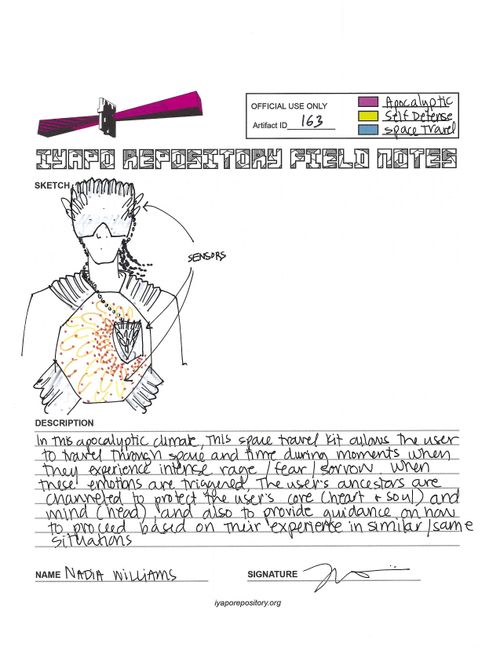 OFFICIAL USE ONLY
Artifact ID 163
Apocalyptic
Self Defense
Space Travel
IYAPO REPOSITORY FIELD NOTES
SKETCH
SENSORS
DESCRIPTION
In this apocalyptic climate, this space travel kit allows the user
to travel through space and time during moments when
they experience intense rage/fear/sorrow. When
these emotions are triggered, The user's ancestors are
channeled to protect the user's core (heart + soul) and
mind (head) and also to provide guidance on how
to proceed based on their experience in similar/same
situations
NAME NADIA WILLIAMS
SIGNATURE
iyaporepository.org